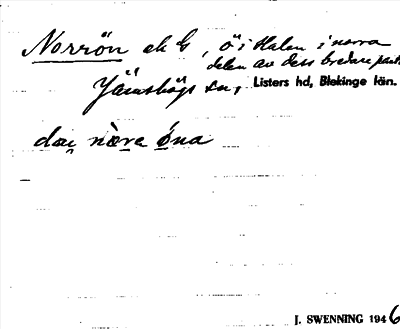 Norrön ek G, ö i Halen i norra
delen av dess bredare part
Jämshögs sn, Listers hd, Blekinge län.
nǫra óna
J. SWENNING 1946